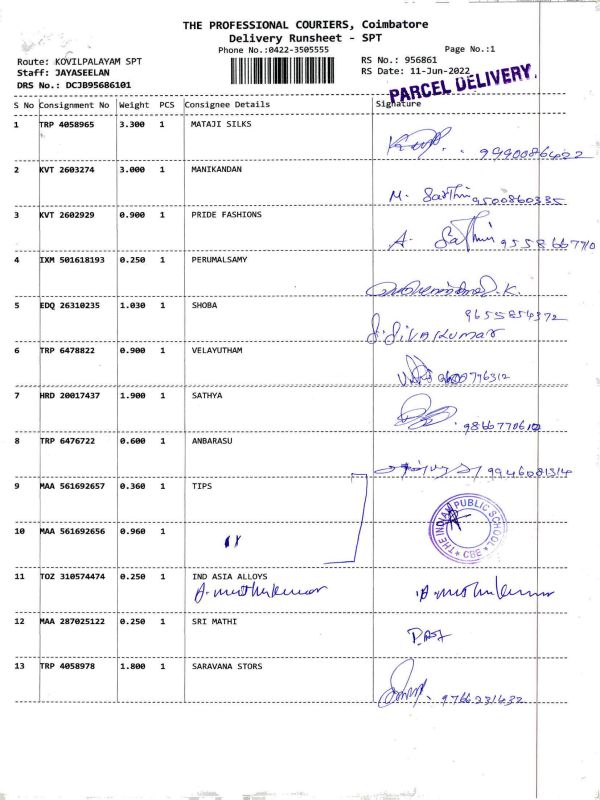 THE PROFESSIONAL COURIERS, Coimbatore
Delivery Runsheet - SPT
Phone No.:0422-3505555
Page No.:1
Route: KOVILPALAYAM SPT
RS No.: 956861
Staff: JAYASEELAN
RS Date: 11-Jun-2022
DRS No.: DCJB95686101
PARCEL DELIVERY.
S No Consignment No Weight PCS Consignee Details Signature
1 TRP 4058965 3.300 1 MATAJI SILKS
9990086422
2 KVT 2603274 3.000 1 MANIKANDAN
M. Sarthi 9500860335
3 KVT 2602929 0.900 1 PRIDE FASHIONS
A. Sathis 9558667710
4 IXM 501618193 0.250 1 PERUMALSAMY
5 EDQ 26310235 1.030 1 SHOBA
9655854372
S.SIVAKUMAR
6 TRP 6478822 0.900 1 VELAYUTHAM
7 HRD 20017437 1.900 1 SATHYA
8 TRP 6476722 0.600 1 ANBARASU
9946081314
9 MAA 561692657 0.360 1 TIPS
THE INDIAN PUBLIC SCHOOL * CBE *
10 MAA 561692656 0.960 1
11 TOZ 310574474 0.250 1 IND ASIA ALLOYS
A. muthukumar A. muthukumar
12 MAA 287025122 0.250 1 SRI MATHI
13 TRP 4058978 1.800 1 SARAVANA STORS
9766231632